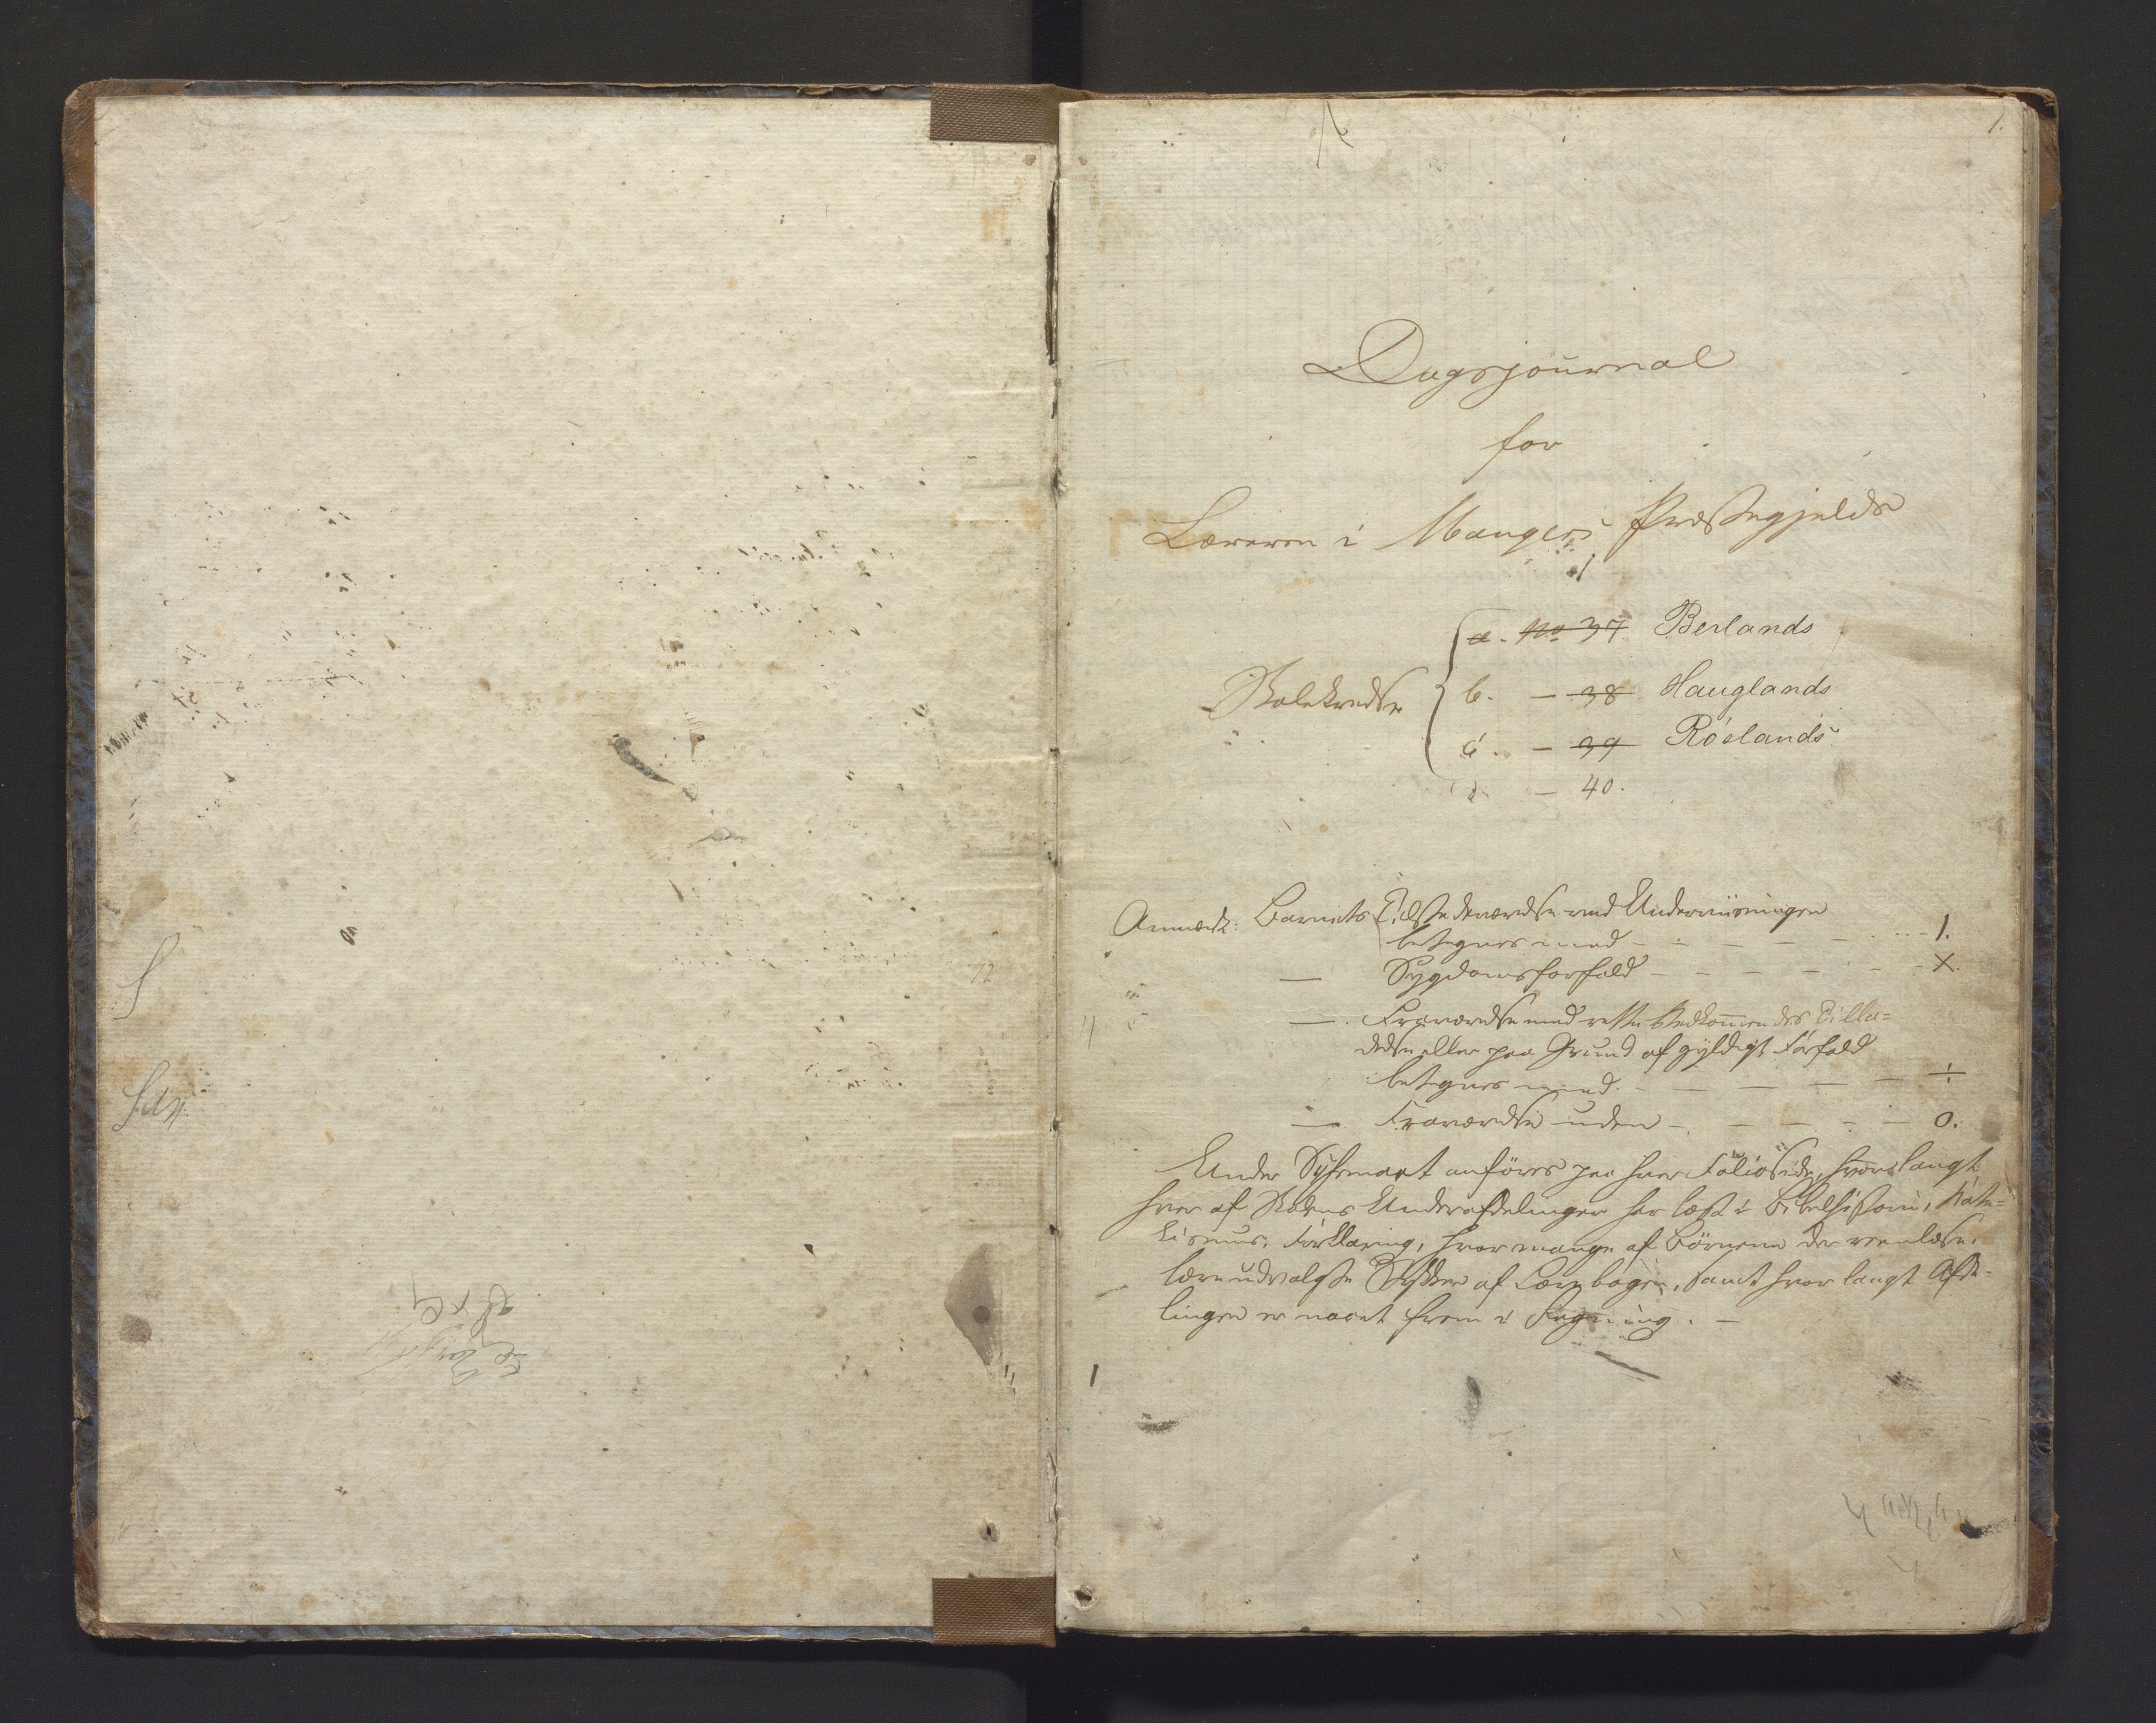 1.
Dagsjournal
for
Læreren i Mangers Præstegjelds
a. No 37 Berlands
Skolekredse b. — 38 Hauglands
c. — 39 Röslands
d — 40.
Anmærk: Barnets Tilstedeværelse ved Underviisningen
betegnes med — — — — — 1.
— Sygdomsforfald — — — — — X.
— Fraværelse med rette Vedkommendes Tilla=
delse eller paa Grund af gyldigt Forfald
betegnes med — — — — — ÷
— Fraværelse uden — — — — 0.
Under anføres paa hver Folioside, hvor langt
hver af Skolens Underafdelinger har læst i Bibelhistorie, Kate=
kismus, Forklaring, hvor mange af Börnene der reenlæse,
lære udvalgte Stykker af Læsebogen, samt hvor langt Afde=
lingen er naaet frem i Regning. —
72